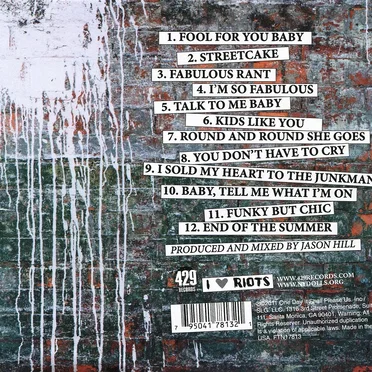 1. FOOL FOR YOU BABY
2. STREETCAKE
3. FABULOUS RANT
4. I'M SO FABULOUS
5. TALK TO ME BABY
6. KIDS LIKE YOU
7. ROUND AND ROUND SHE GOES
8. YOU DON'T HAVE TO CRY
9. I SOLD MY HEART TO THE JUNKMAN
10. BABY, TELL ME WHAT I'M ON
11. FUNKY BUT CHIC
12. END OF THE SUMMER
PRODUCED AND MIXED BY JASON HILL
429
RECORDS
I ♥ RIOTS
WWW.429RECORDS.COM
WWW.NYDOLLS.ORG
2011 One Day It Will Please Us, Inc./
SLG, LLC. 1316 3rd Street Promenade, Su
Santa Monica, CA 90401. Warning: All
Rights Reserved. Unauthorized duplication
is a violation of applicable laws. Made in the
USA. FTN17813
7 95041 78132